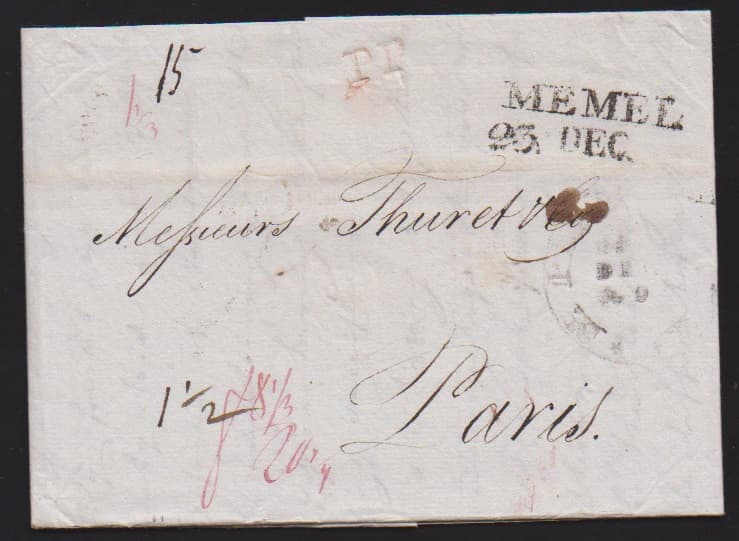 15
PP
1/3
MEMEL
23. DEC.
Messieurs Thuret & Co
1 1/2
f 8 1/3
Paris.